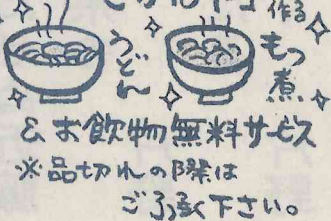 作る
うどん
もつ煮
&お飲物無料サービス
※品切れの際は
ご了承下さい。